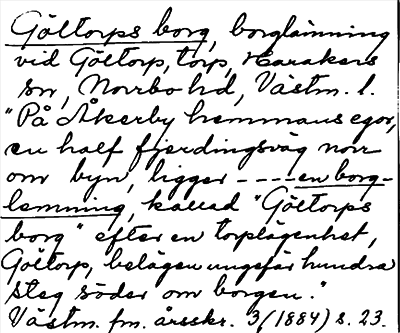 Göltorps borg, borglämning
vid Göltorp, torp, Harakers
sn, Norrbo hd, Västm. l.
"På Åkerby hemmans egor,
en half fjerdingsväg norr
om byn, ligger - - - - en borg-
lemning, kallad "Göltorps
borg" efter en torplägenhet,
Göltorp, belägen ungefär hundra
steg söder om borgen."
Västm. fm. årsskr. 3/(1884) s. 23.